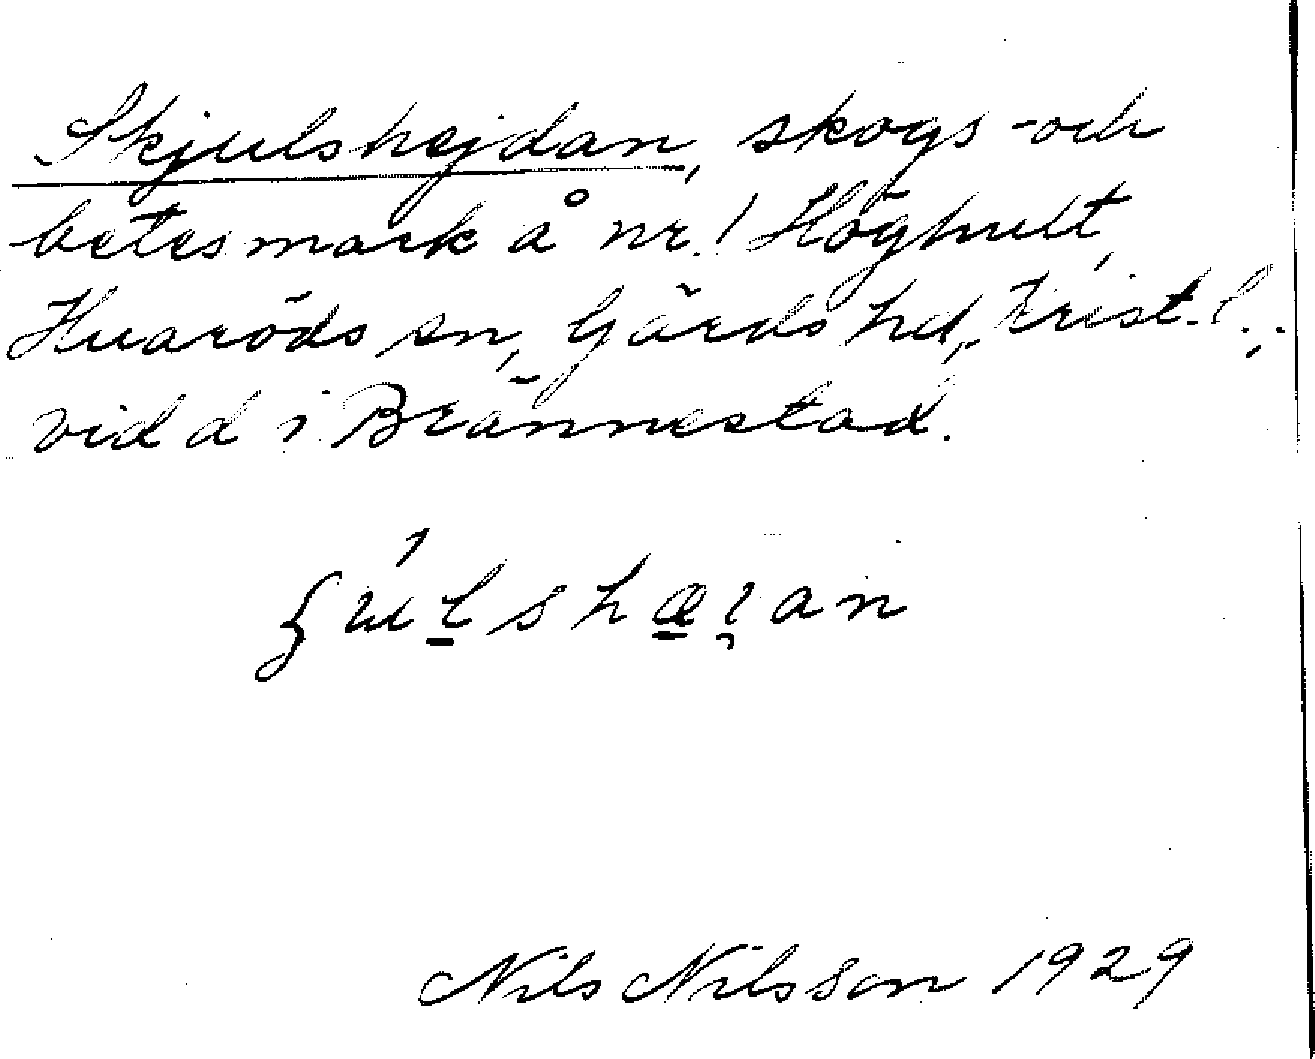 Skjulshejdan, skogs- och
betesmark å nr 1 Höghult,
Huaröds sn, Gärds hd, Krist. l.,
vid d i Brännestad.
Nils Nilsson 1929